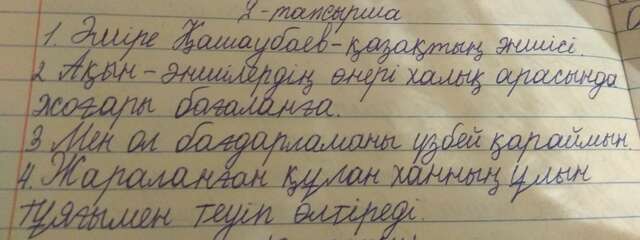 2-тапсырма
1. Әміре Қашаубаев-қазақтың әншісі.
2 Ақын-әншілердің өнері халық арасында
жоғары бағаланға.
3 Мен ол бағдарламаны үзбей қараймын.
4. Жараланған құлан ханның ұлын
тұяғымен теуіп өлтіреді.